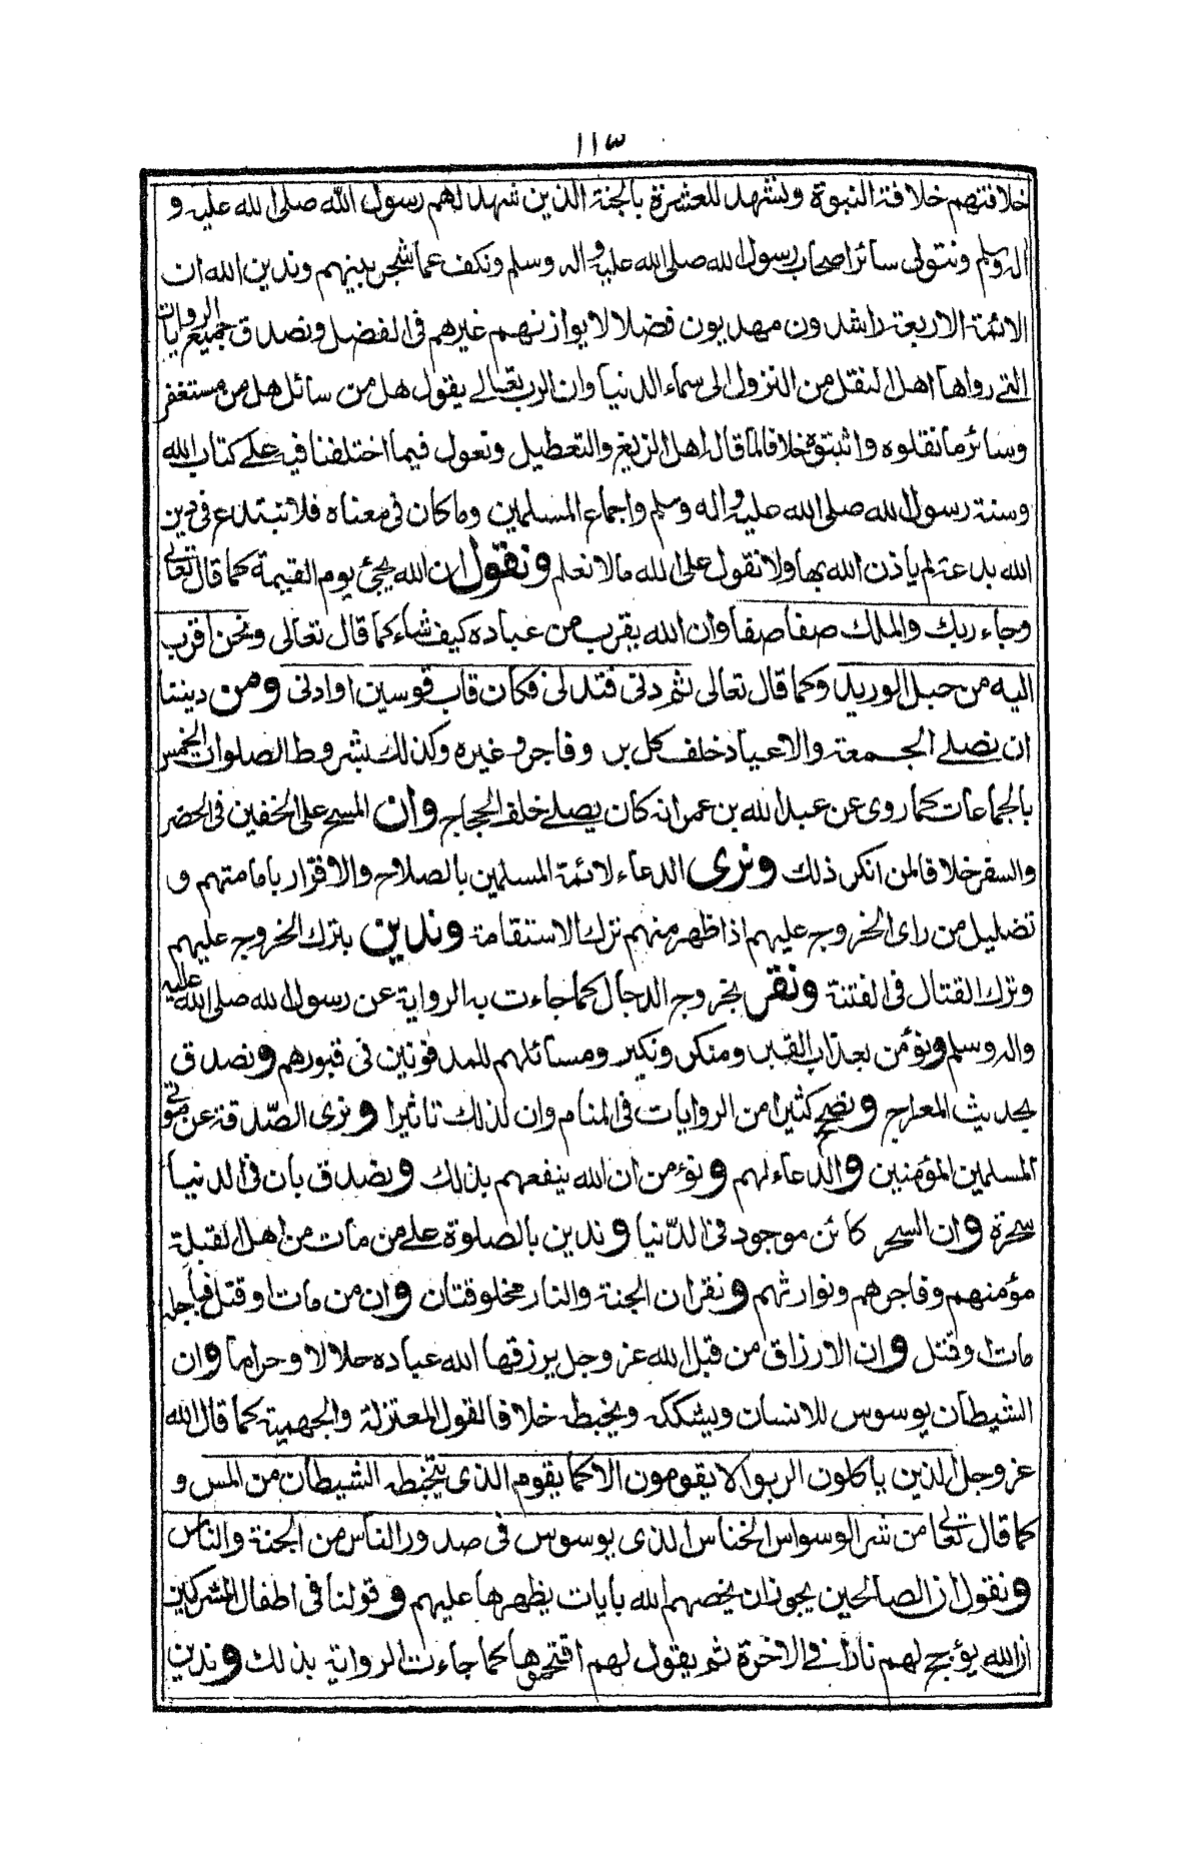 ١١٣
خلافتهم خلافة النبوة ونشهد للعشرة بالجنة الذين شهد لهم رسول الله صلى الله عليه و
اله وسلم ونتولى سائر اصحاب رسول الله صلى الله عليه واله وسلم ونكف عما شجر بينهم وندين الله ان
الائمة الاربعة راشدون مهديون فضلا لا يوازنهم غيرهم فى الفضل ونصدق جميع الروايات
التى رواها اهل النقل من النزول الى سماء الدنيا وان الرب تعالى يقول هل من سائل هل من مستغفر
وسائر ما نقلوه واثبتوه خلافا لما قال اهل الزيغ والتعطيل ونعول فيما اختلفنا فيه على كتاب الله
وسنة رسول الله صلى الله عليه واله وسلم واجماع المسلمين وما كان فى معناه فلا نبتدع فى دين
الله بدعة لم ياذن الله بها ولا نقول على الله ما لا نعلم ونقول ان الله يجئ يوم القيمة كما قال تعالى
وجاء ربك والملك صفا صفا وان الله يقرب من عباده كيف شاء كما قال تعالى ونحن اقرب
اليه من حبل الوريد وكما قال تعالى ثم دنى فتدلى فكان قاب قوسين او ادنى ومن ديننا
ان نصلے الجمعة والاعياد خلف كل بر وفاجر وغيره وكذلك شروط الصلوات الخمس
بالجماعات كما روى عن عبد الله بن عمر انه كان يصلے خلف الحجاج وان المسح على الخفين فى الحضر
والسفر خلافا لمن انكر ذلك ونرى الدعاء لائمة المسلمين بالصلاح والاقرار بامامتهم و
تضليل من راى الخروج عليهم اذا ظهر منهم ترك الاستقامة وندين بترك الخروج عليهم
وترك القتال فى الفتنة ونقر بخروج الدجال كما جاءت به الرواية عن رسول الله صلى الله عليه
واله وسلم ونؤمن بعذاب القبر ومنكر ونكير ومسائلهم للمدفونين فى قبورهم ونصدق
بحديث المعراج ونصحح كثيرا من الروايات فى المنام وان لذلك تاثيرا ونرى الصدقة عن موتى
المسلمين المؤمنين والدعاء لهم ونؤمن ان الله ينفعهم بذلك ونصدق بان فى الدنيا
سحرة وان السحر كائن موجود فى الدنيا وندين بالصلوة علے من مات من اهل القبلة
مؤمنهم وفاجرهم ونوارثهم ونقر ان الجنة والنار مخلوقتان وان من مات او قتل فباجله
مات او قتل وان الارزاق من قبل الله عز وجل يرزقها الله عباده حلالا وحراما وان
الشيطان يوسوس للانسان ويشككه ويخبطه خلافا لقول المعتزلة والجهمية كما قال الله
عز وجل الذين ياكلون الربوا لا يقومون الا كما يقوم الذى يتخبطه الشيطان من المس و
كما قال تعالى من شر الوسواس الخناس الذى يوسوس فى صدور الناس من الجنة والناس
ونقول ان الصالحين يجوز ان يخصهم الله بايات يظهرها عليهم وقولنا فى اطفال المشركين
ان الله يؤجج لهم نارا فى الاخرة ثم يقول لهم اقتحموها كما جاءت الرواية بذلك وندين